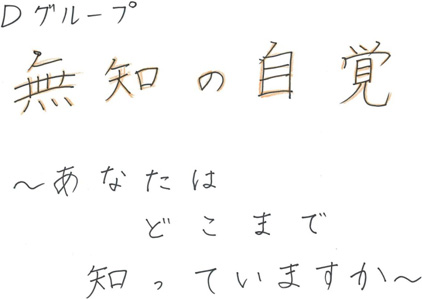 Dグループ
無知の自覚
～あなたは
どこまで
知っていますか～